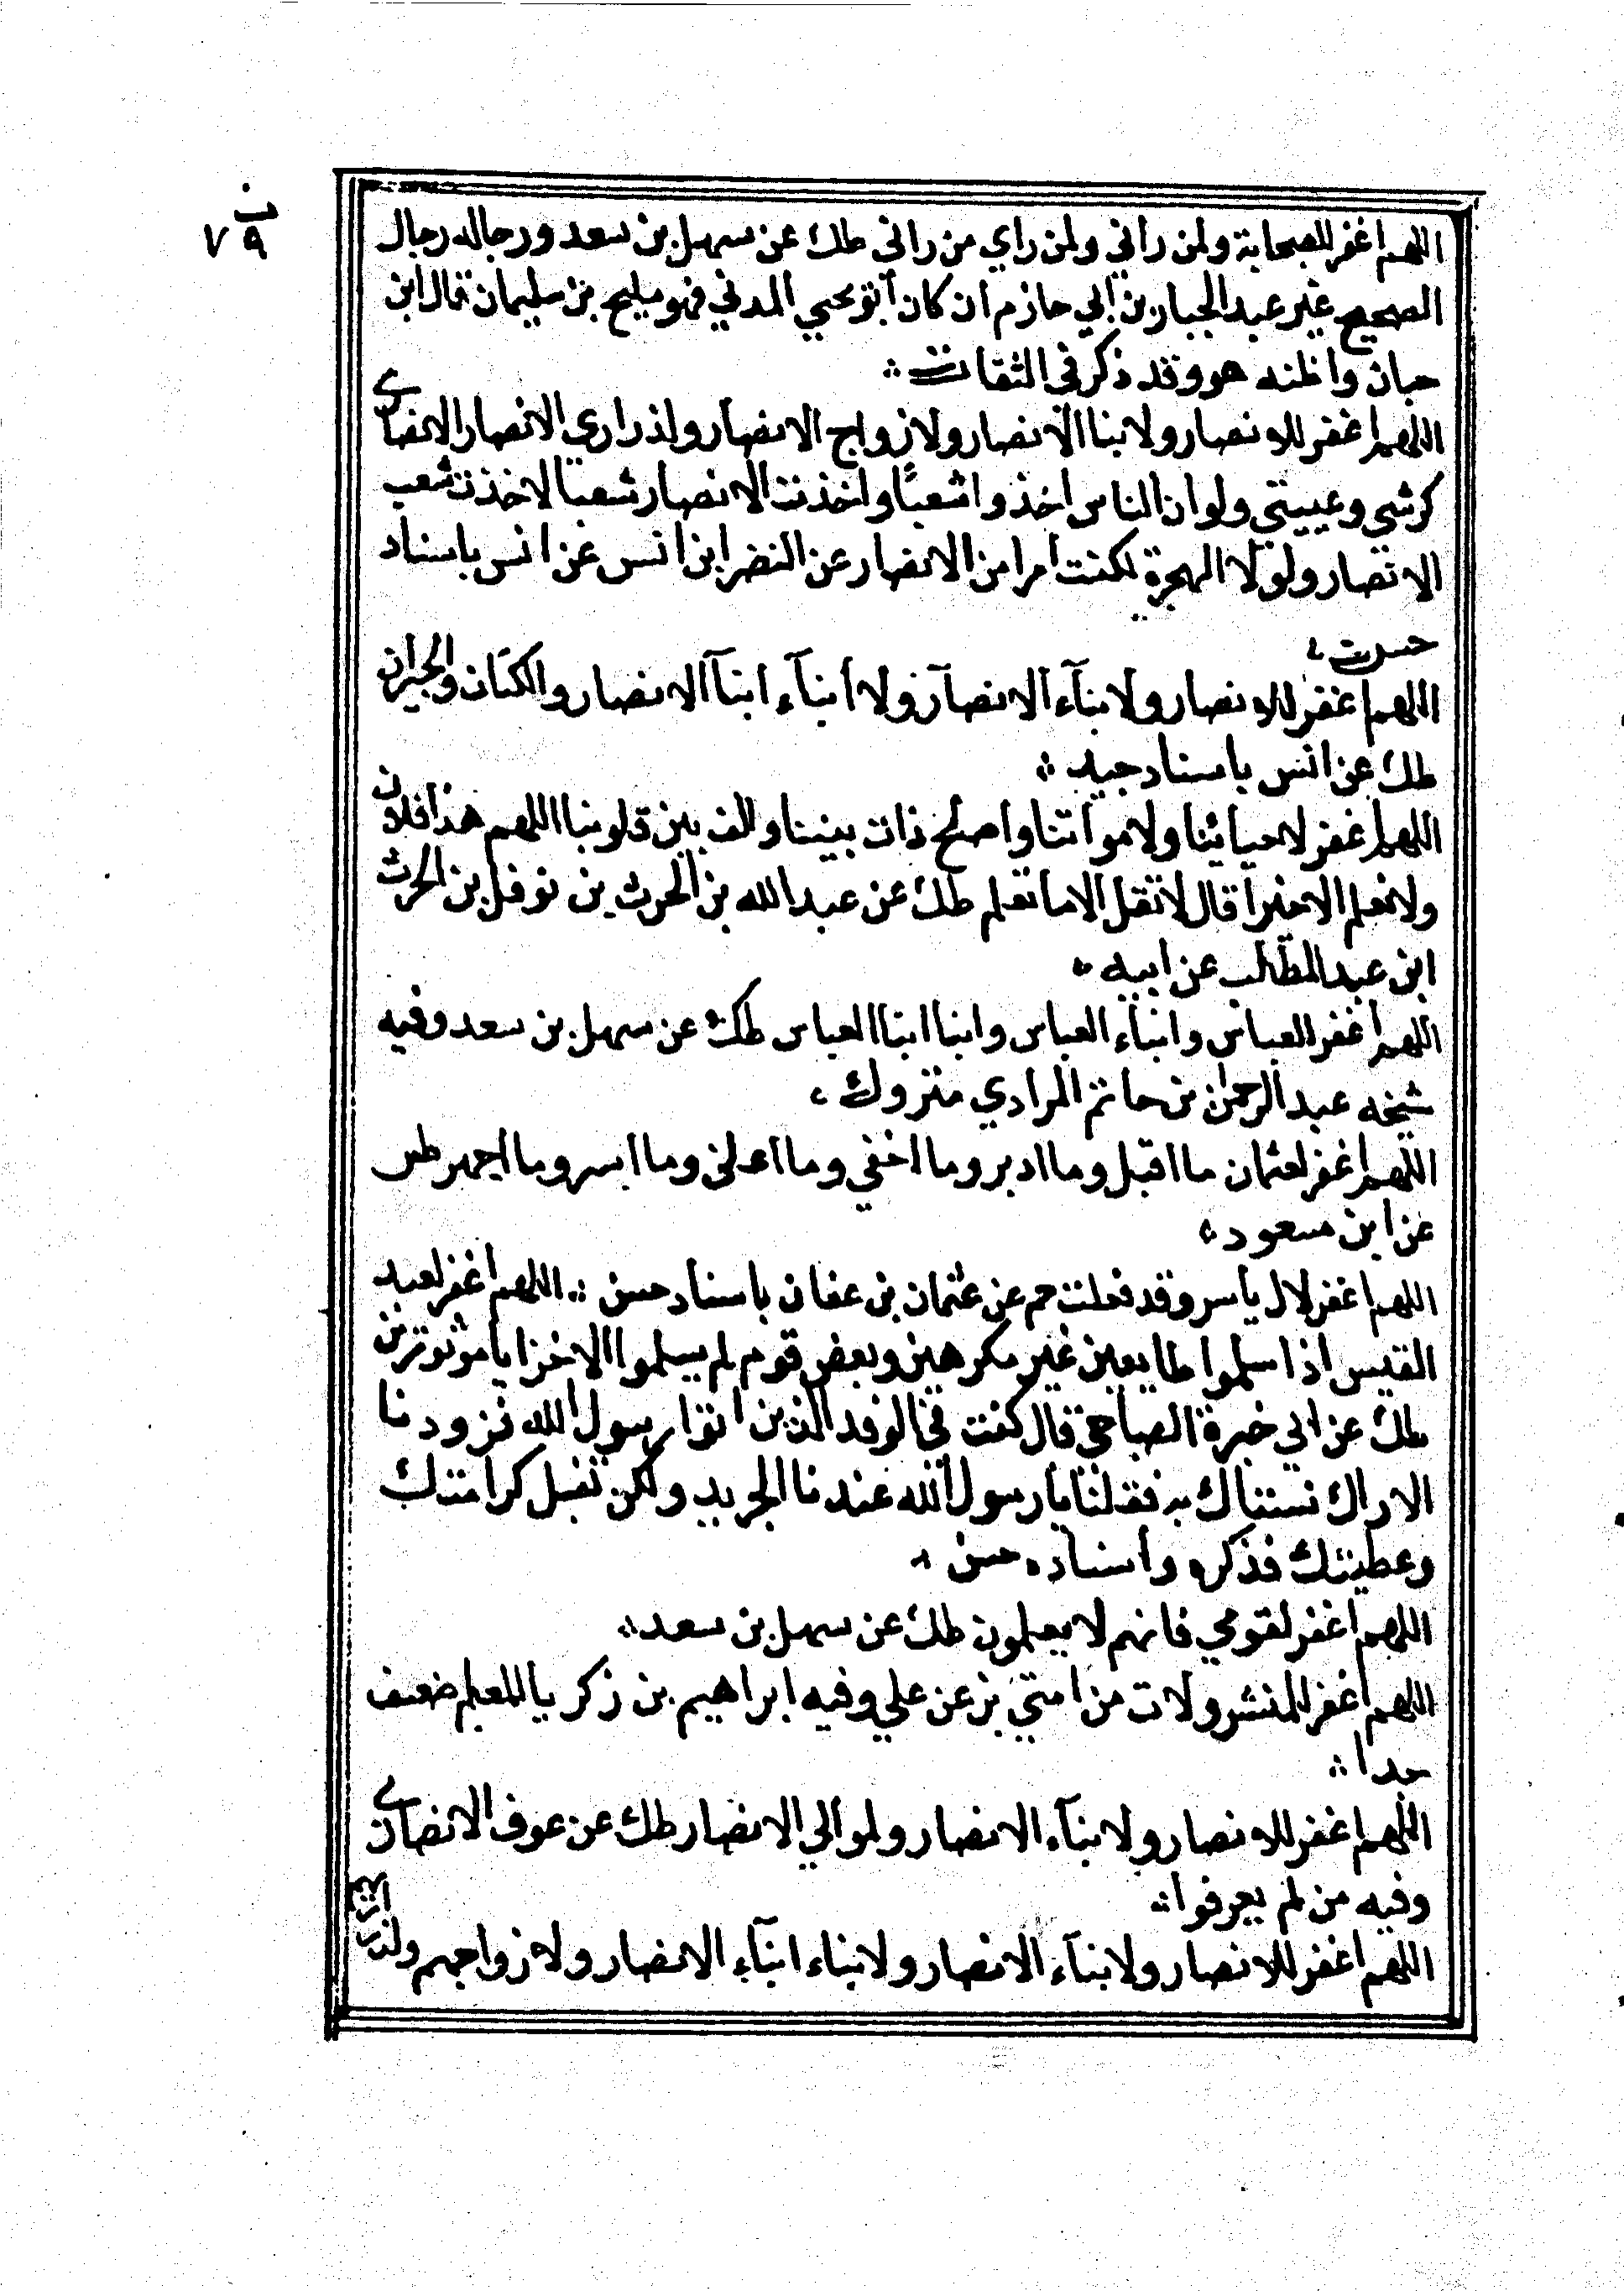 ق ٧٩
اللهم اغفر للصحابة ولمن رآني ولمن راي من راني طك عن سهل بن سعد ورجاله رجال
الصحيح غير عبد الجبار بن ابي حازم ان كان ابو يحيي المدني فهو مليح بن سليمان قال ابن
حبان واظنه هو وقد ذكر في الثقات
اللهم اغفر للانصار ولابنا الانصار ولازواج الانصار ولذراري الانصار الانصار
كرشي وعيبتي ولو ان الناس اخذوا شعبًا واخذت الانصار شعبا لاخذت شعب
الانصار ولولا الهجرة لكنت امرا من الانصار عن النضر ابن انس عن انس باسناد
حسن
اللهم اغفر للانصار ولابنآء الانصار ولا أبنآء ابنآ الانصار والكنان والجيران
طك عن انس باسناد جيد
اللهم اغفر لاحيائنا ولامواتنا واصلح ذات بيننا والف بين قلوبنا اللهم هذا فلان
ولا نعلم الا خيرا قال لا تقل الا ما تعلم طك عن عبد الله بن الحرث بن نوفل بن الحرث
ابن عبد المطلب عن ابيه
اللهم اغفر للعباس وابناء العباس وابنا ابنا العباس طك عن سهل بن سعد وفيه
شيخه عبد الرحمن بن حاتم المرادي متروك
اللهم اغفر لعثمان ما اقبل وما ادبر وما اخفي وما اعلن وما اسر وما اجهر طس
عن ابن مسعود
اللهم اغفر لال ياسر وقد فعلت حم عن عثمان بن عفان باسناد حسن اللهم اغفر لعبد
القيس اذ اسلموا طايعين غير مكرهين وبعض قوم لم يسلموا الا خزايا موتورين
طك عن ابي خبرة الصباحي قال كنت في الوفد الذين اتوا رسول الله فزودنا
الاراك نستاك به فقلنا يا رسول الله عندنا الجريد ولكن نقبل كرامتك
وعطيتك فذكره واسناده حسن
اللهم اغفر لقومي فانهم لا يعلمون طك عن سهل بن سعد
اللهم اغفر للمتسرولات من امتي بز عن علي وفيه ابراهيم بن زكريا المعلم ضعيف
جدا
اللهم اغفر للانصار ولابنآء الانصار ولموالي الانصار طك عن عوف الانصاري
وفيه من لم يعرفوا
اللهم اغفر للانصار ولابنآء الانصار ولابناء ابنآء الانصار ولازواجهم ولذراريهم